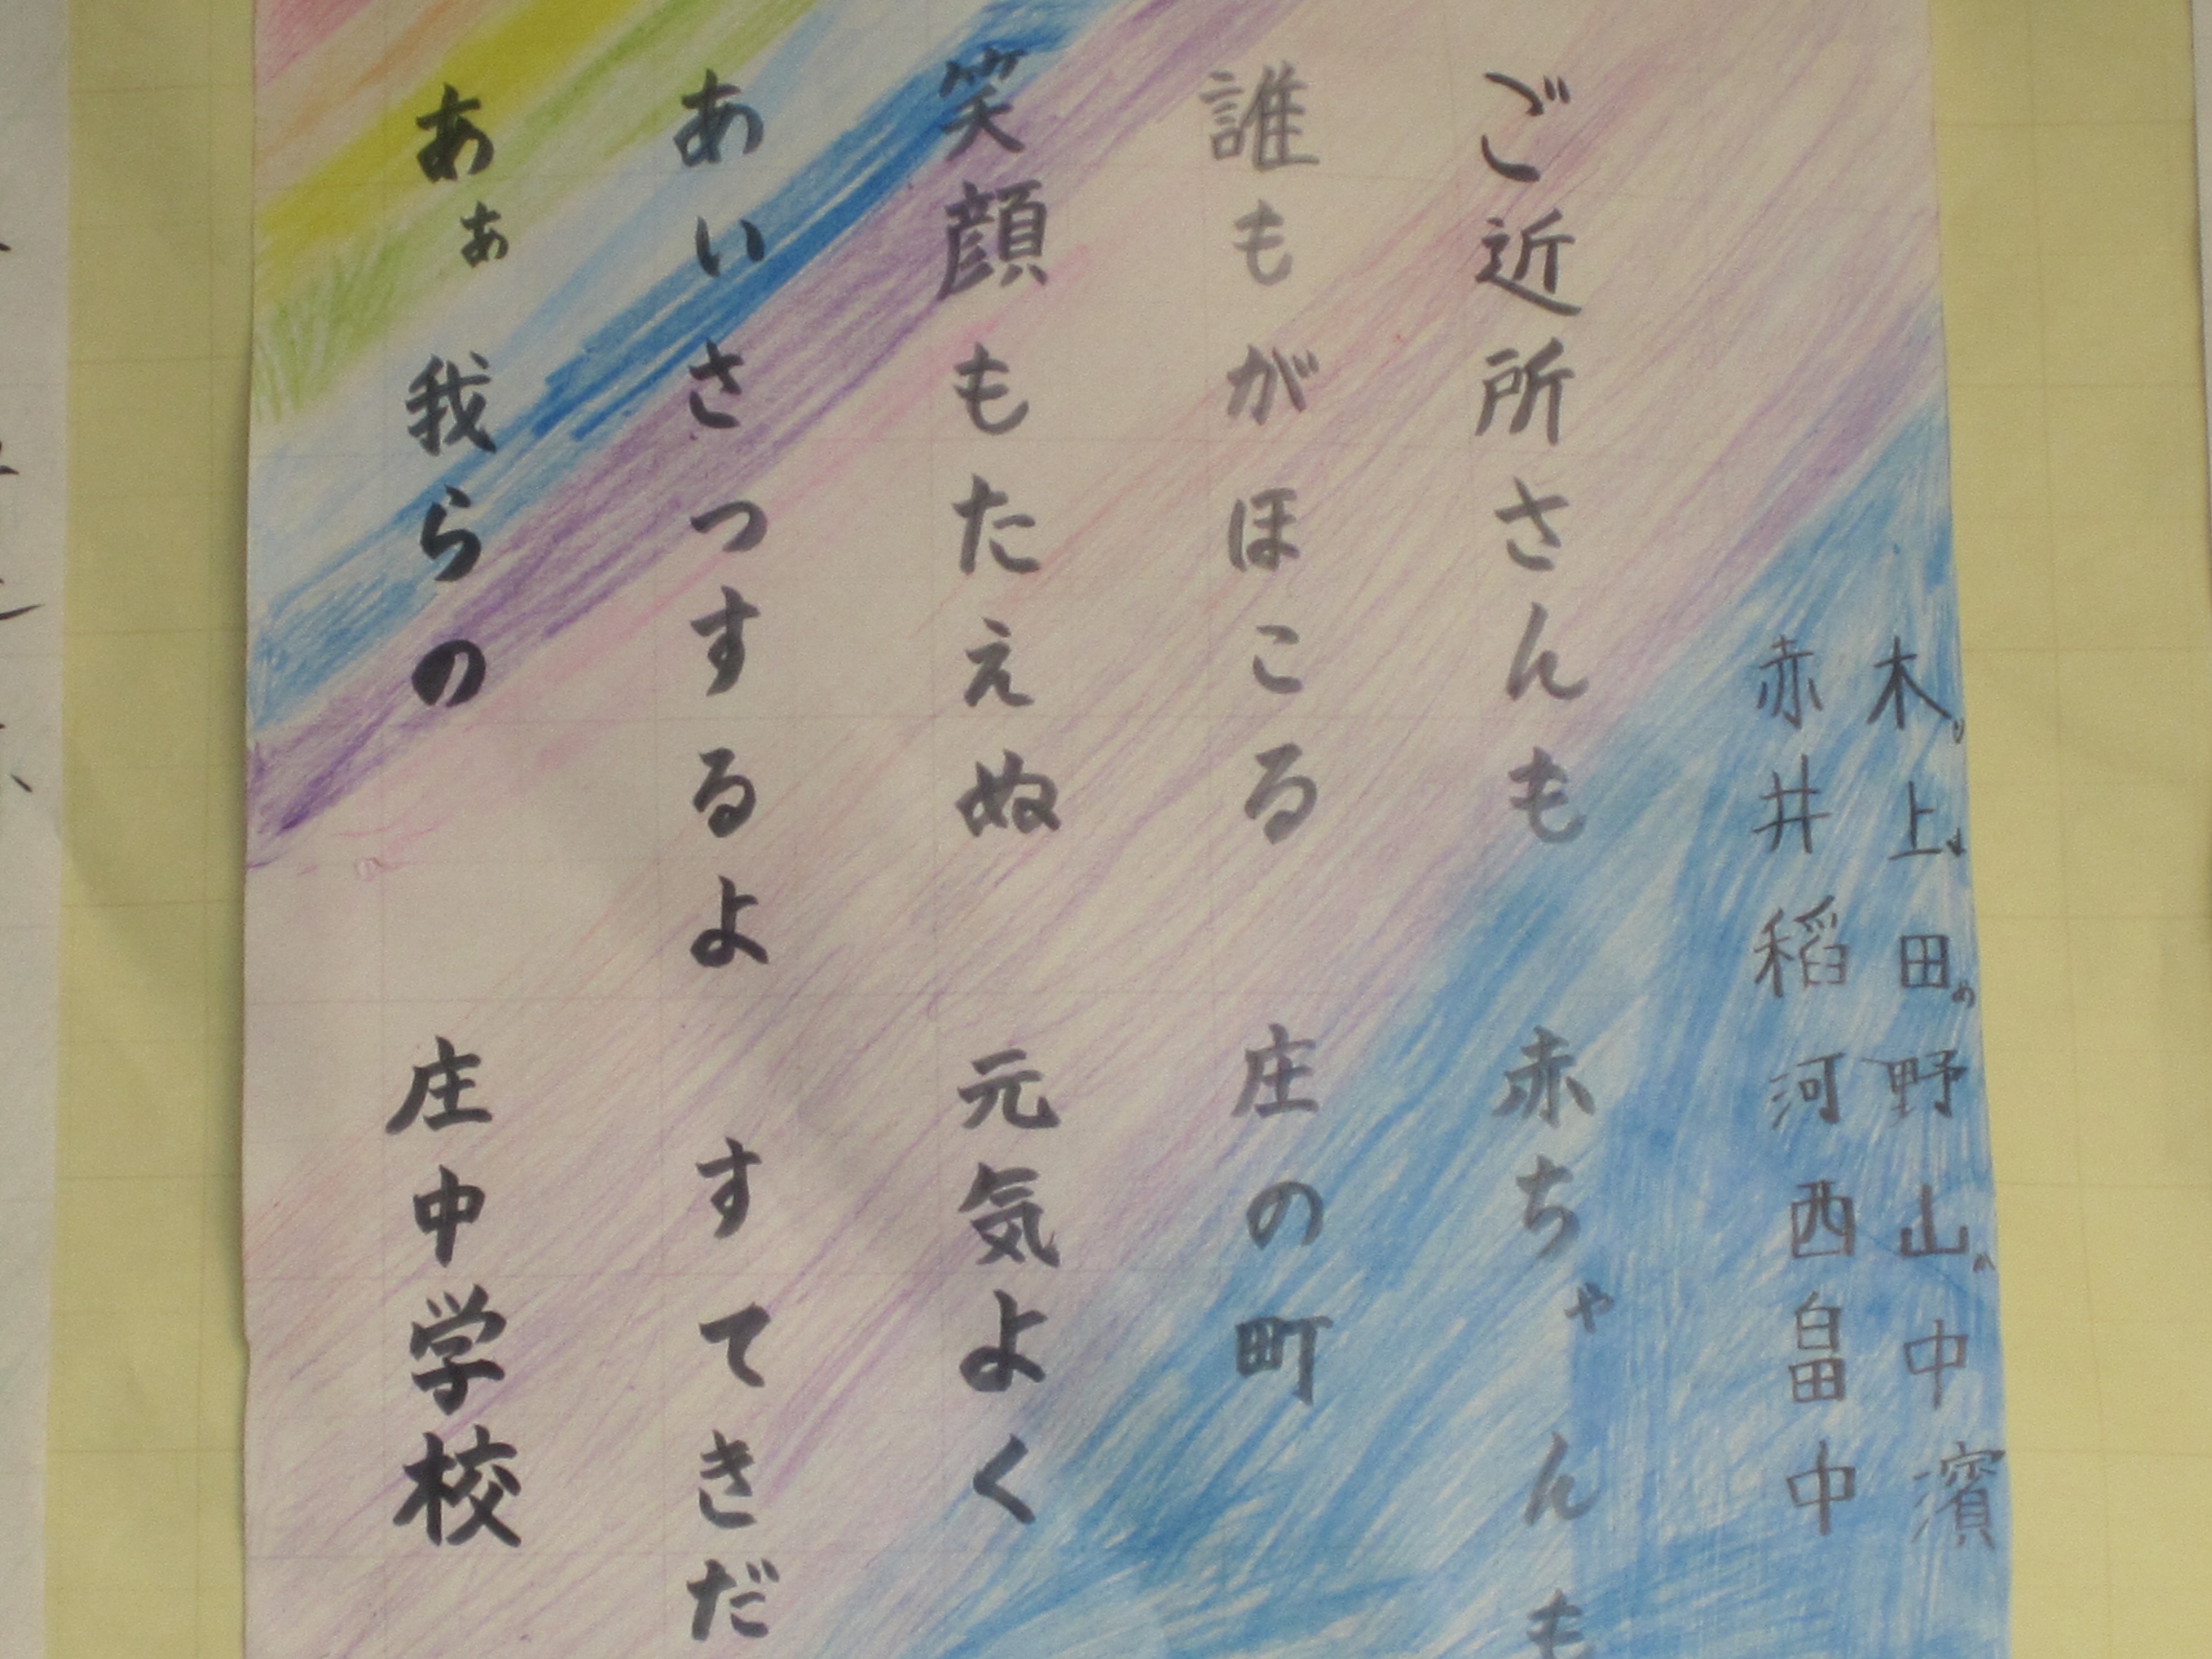 木上田野山中濱
赤井稻河西畠中
ご近所さんも　赤ちゃんも
誰もがほこる　庄の町
笑顔もたえぬ　元気よく
あいさつするよ　すてきだ
あぁ　我らの　庄中学校